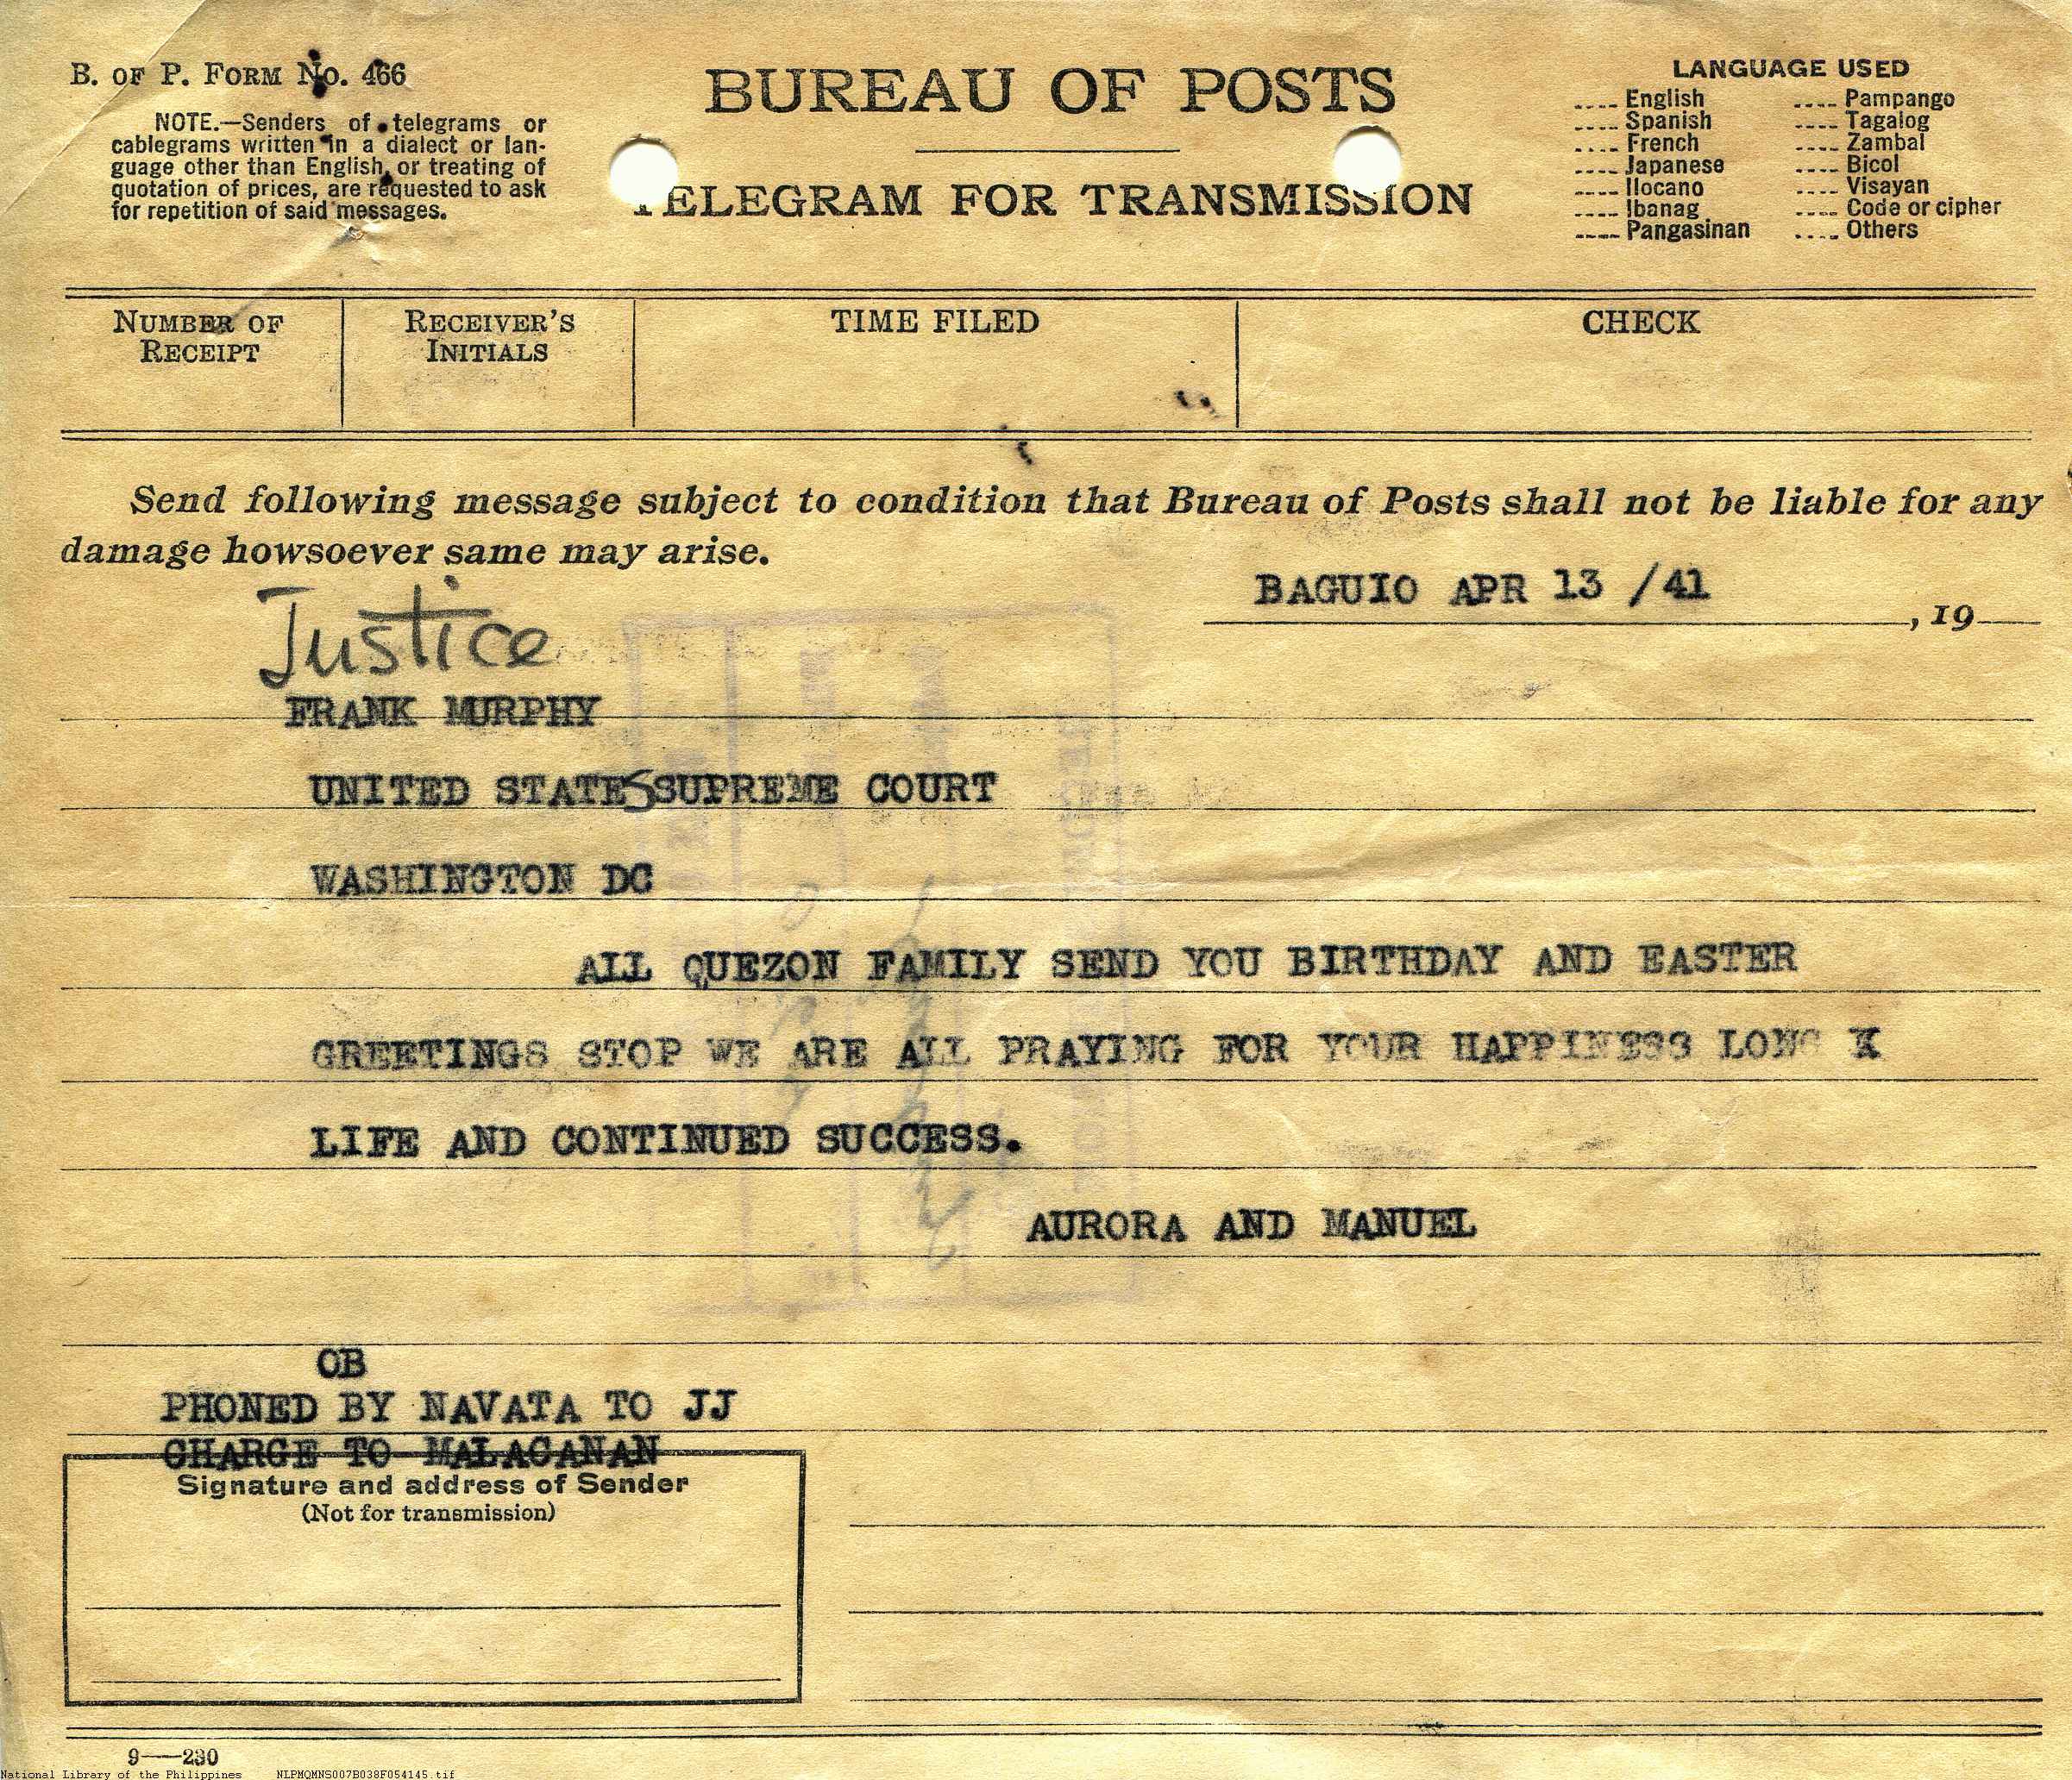 B. OF P. FORM No. 466
NOTE.—Senders of telegrams or
cablegrams written in a dialect or lan-
guage other than English, or treating of
quotation of prices, are requested to ask
for repetition of said messages.
BUREAU OF POSTS
TELEGRAM FOR TRANSMISSION
LANGUAGE USED
---- English
---- Spanish
---- French
---- Japanese
---- Ilocano
---- Ibanag
---- Pangasinan
---- Pampango
---- Tagalog
---- Zambal
---- Bicol
---- Visayan
---- Code or cipher
---- Others
NUMBER OF
RECEIPT
RECEIVER'S
INITIALS
TIME FILED
CHECK
Send following message subject to condition that Bureau of Posts shall not be liable for any
damage howsoever same may arise.
BAGUIO APR 13 /41
, 19
Justice
FRANK MURPHY
UNITED STATES SUPREME COURT
WASHINGTON DC
ALL QUEZON FAMILY SEND YOU BIRTHDAY AND EASTER
GREETINGS STOP WE ARE ALL PRAYING FOR YOUR HAPPINESS LONG X
LIFE AND CONTINUED SUCCESS.
AURORA AND MANUEL
OB
PHONED BY NAVATA TO JJ
CHARGE TO MALACANAN
Signature and address of Sender
(Not for transmission)
9—230
National Library of the Philippines NLPMQMNS007B038F054145.tif